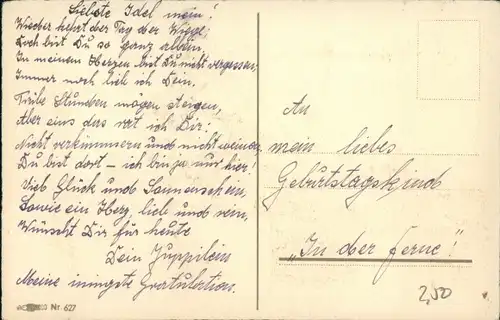 Liebste Idel mein!
Wieder kehrt der Tag der Wiege;
Doch bist Du so ganz allein,
In meinem Herzen bist Du nicht vergessen;
Immer noch lieb ich Dein.
Trübe Stunden mögen steigen,
Aber eins das rat ich Dir:
Nicht verkümmern und nicht weinen,
Du bist dort – ich bin ja nur hier!
Viel Glück und Sonnenschein,
Sowie ein Herz, lieb und rein,
Wünscht Dir für heute
Dein Juppilein
Meine innigste Gratulation.
Nr. 627
An
mein liebes
Geburtstagskind
"In der Ferne"!
2,50